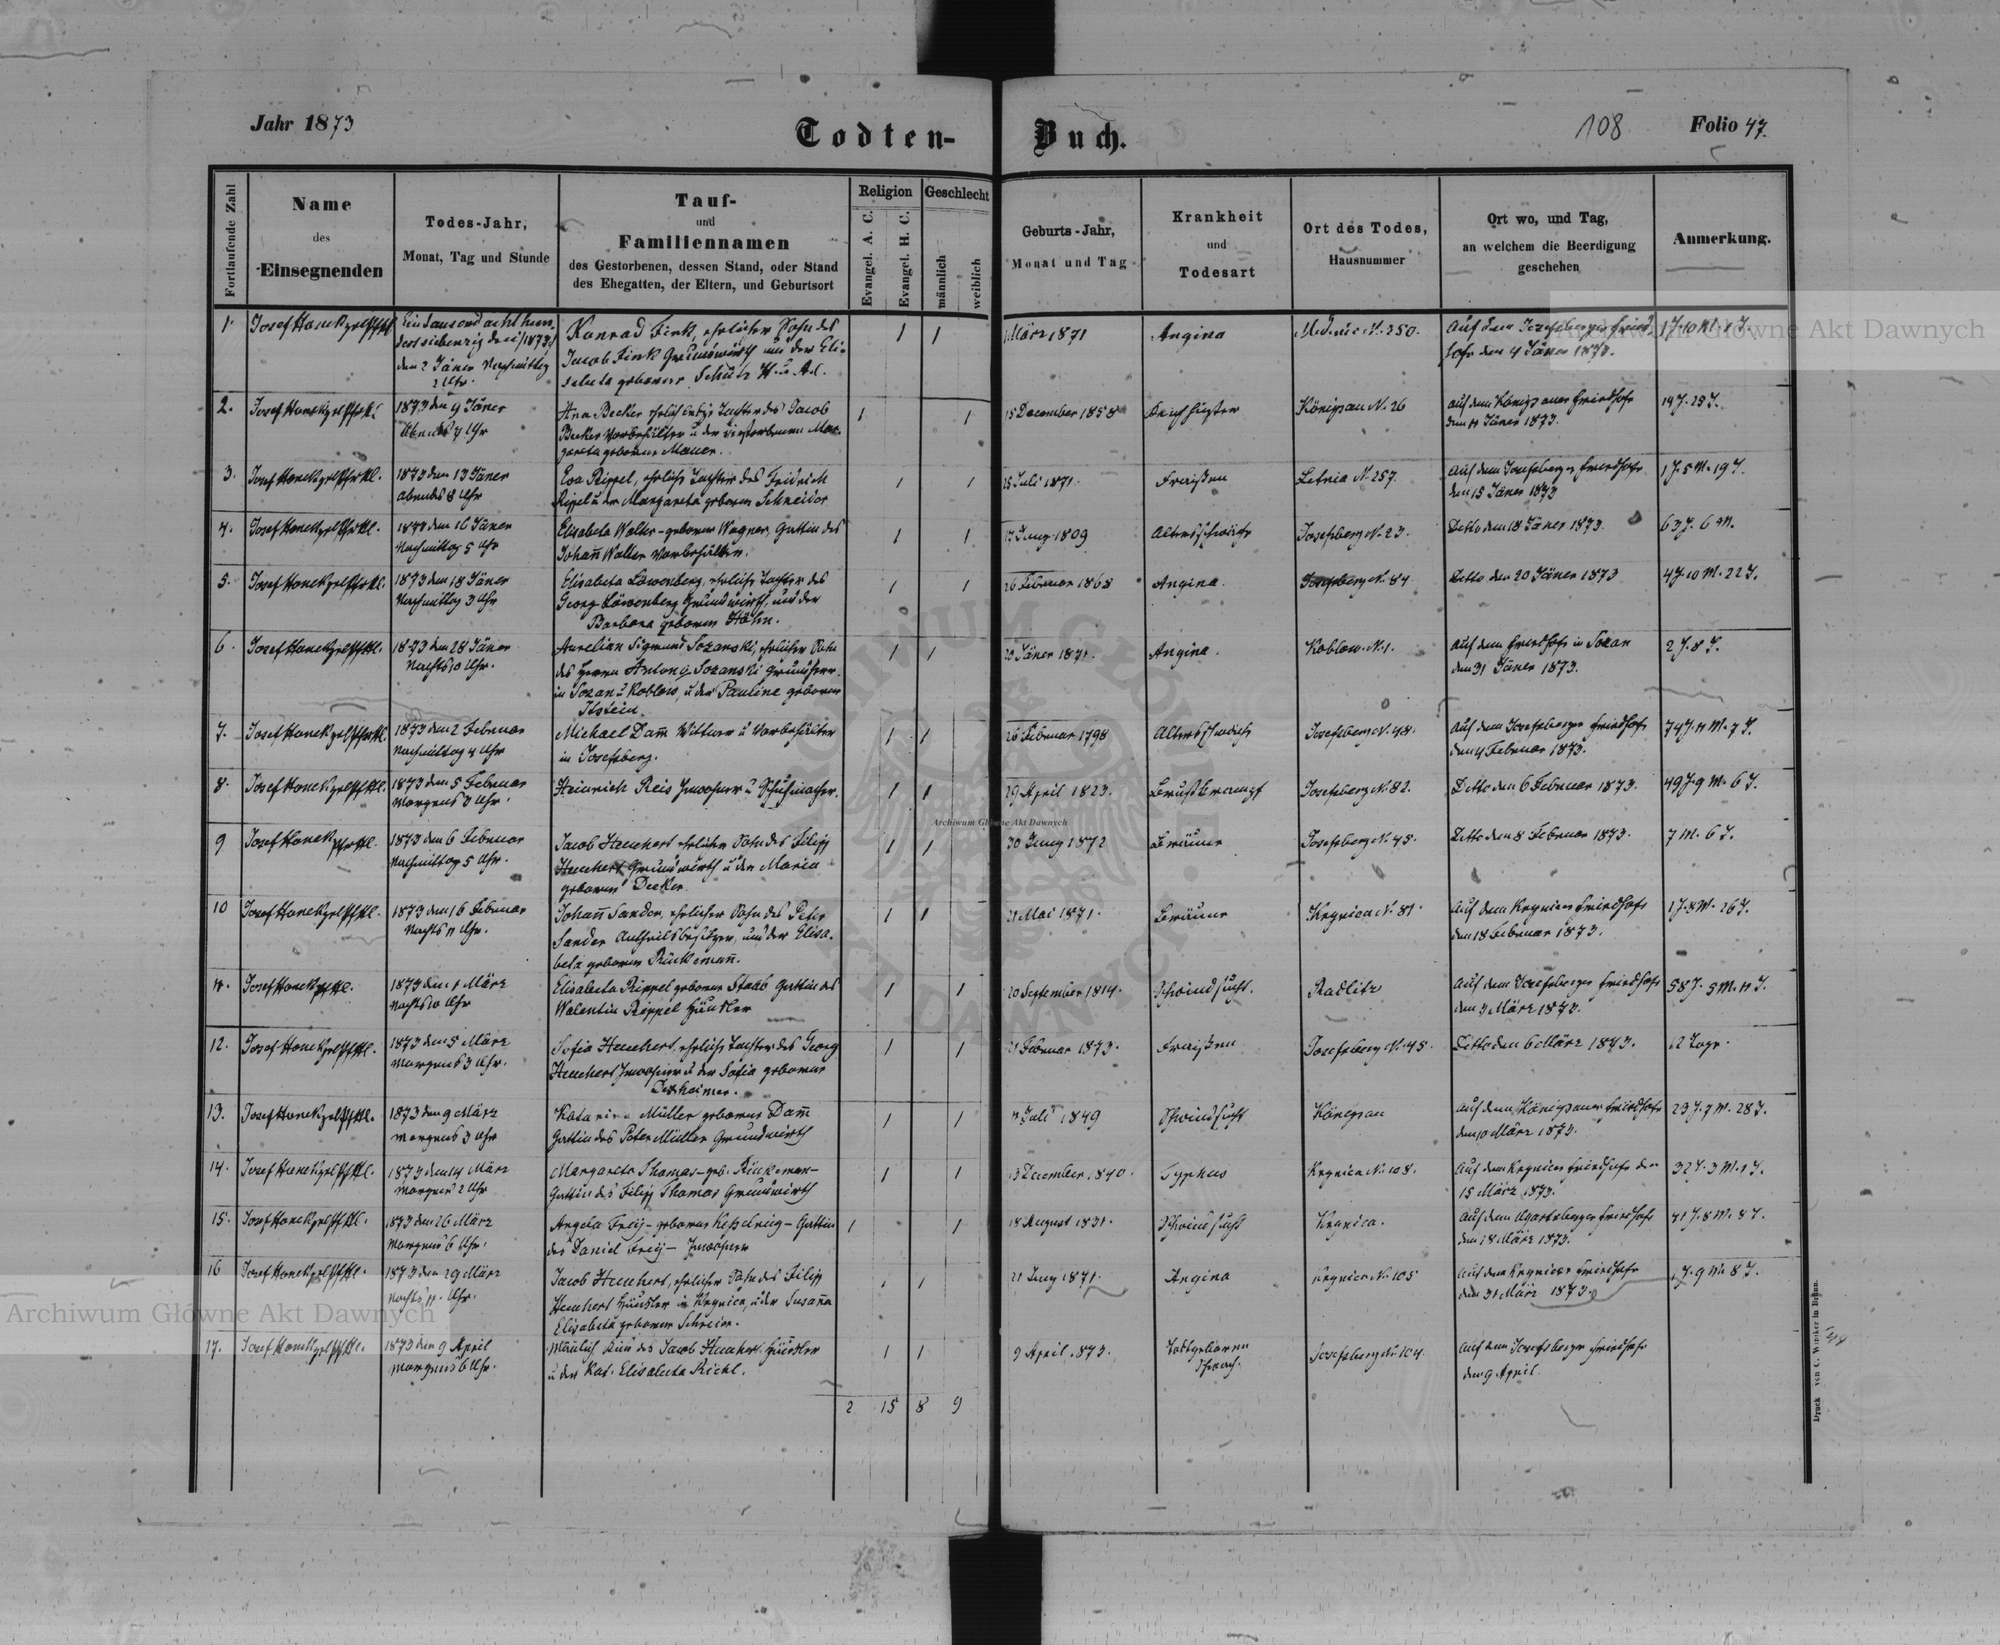 Jahr 1873
Todten-Buch.
108
Folio 47.
Fortlaufende Zahl
Name
des
Einsegnenden
Todes-Jahr,
Monat, Tag und Stunde
Tauf-
und
Familiennamen
des Gestorbenen, dessen Stand, oder Stand
des Ehegatten, der Eltern, und Geburtsort
Religion
Evangel. A. C.
Evangel. H. C.
Geschlecht
männlich
weiblich
Geburts-Jahr,
Monat und Tag
Krankheit
und
Todesart
Ort des Todes,
Hausnummer
Ort wo, und Tag,
an welchem die Beerdigung
geschehen
Anmerkung.
1. Josef Hanek
Eintausend acht hun-
dert siebenzig drei /1873/
den 2 Jäner Nachmittag
2 Uhr.
Konrad Fink, ehelicher Sohn des
Jacob Fink Grundwirth und der Eli-
sabeta geborner Schütz
1 1
1 März 1871
Angina
N. 250.
Auf dem Josefsberger Fried-
hofe den 4 Jäner 1873.
1 J. 10 M. 1 T.
2. Josef Hanek
1873 den 9 Jäner
Abends 7 Uhr
Ana Becker eheliche Tochter des Jacob
Becker Vorbehälter u der verstorbenen Mar-
gareta geborner Mauer.
1 1
15 December 1858
Keichhusten
Königsau N. 26
auf dem Königsauer Friedhofe
den 11 Jäner 1873.
14 J. 25 T.
3. Josef Hanek
1873 den 13 Jäner
abends 8 Uhr
Eva Rippel, eheliche Tochter des Fridrich
Rippel u der Margareta geboren Schneider
1 1
25 Juli 1871.
Fraißen
Letnia N. 257.
Auf dem Josefsberger Friedhofe
den 15 Jäner 1873
1 J. 5 M. 19 T.
4. Josef Hanek
1873 den 16 Jäner
Nachmittag 5 Uhr
Elisabeta Walter-geborner Wagner, Gattin des
Johann Walter Vorbehälter.
1 1
17 Juny 1809
Altersschwäche
Josefsberg N. 23.
Detto den 18 Jäner 1873.
63 J. 6 M.
5. Josef Hanek
1873 den 18 Jäner
Nachmittag 3 Uhr
Elisabeta Löwenberg, eheliche Tochter des
Georg Löwenberg Grundwirth, und der
Barbara geboren Höhn.
1 1
26 Februar 1868
Angina.
Josefsberg N. 84
Detto den 20 Jäner 1873
4 J. 10 M. 22 T.
6. Josef Hanek
1873 den 28 Jäner
Nachts 10 Uhr.
Aurelian Sigmund Sozanski, ehelicher Sohn
des Herrn Antony Sozanski Grundherr
in Sozan u Koblow, u der Pauline geboren
Itstein.
1 1
20 Jäner 1871.
Angina.
Koblow. N. 1.
auf dem Friedhofe in Sozan
den 31 Jäner 1873.
2 J. 8 T.
7. Josef Hanek
1873 den 2 Februar
Nachmittag 4 Uhr
Michael Dam Wittwer u Vorbehälter
in Josefsberg.
1 1
26 Februar 1798
Altersschwäche
Josefsberg N. 48.
Auf dem Josefsberger Friedhofe
den 4 Februar 1873.
74 J. 11 M. 7 T.
8. Josef Hanek
1873 den 5 Februar
Morgens 3 Uhr.
Heinrich Reis Inwohner u Schuhmacher.
1 1
29 April 1823.
Brustkrampf
Josefsberg N. 82.
Detto den 6 Februar 1873.
49 J. 9 M. 6 T.
9 Josef Hanek
1873 den 6 Februar
Nachmittag 5 Uhr.
Jacob Heuchert ehelicher Sohn des Filipp
Heuchert Grundwirth u der Maria
geboren Decker.
1 1
30 Juny 1872
Bräune
Josefsberg N. 45.
Detto den 8 Februar 1873.
7 M. 6 T.
10 Josef Hanek
1873 den 16 Februar
Nachts 11 Uhr.
Johann Sander, ehelicher Sohn des Peter
Sander Antheilsbesitzer, und der Elisa-
beta geboren Rückemann.
1 1
21 Mai 1871.
Bräune
Krynica N. 81.
Auf dem Krynicer Friedhofe
den 18 Februar 1873.
1 J. 8 M. 26 T.
11. Josef Hanek
1873 den 1 März
Nachts 10 Uhr
Elisabeta Rippel geborner Staab Gattin des
Walentin Rippel Häusler
1 1
20 September 1814.
Schwindsucht.
Radlitz
Auf dem Josefsberger Friedhofe
den 3 März 1873.
58 J. 5 M. 11 T.
12. Josef Hanek
1873 den 5 März
Morgens 3 Uhr.
Sofia Heuchert, eheliche Tochter des Georg
Heuchert Inwohner u der Sofia geborner
1 1
21 Februar 1873.
Fraißen
Josefsberg N. 45.
Detto den 6 März 1873.
12 Tage.
13. Josef Hanek
1873 den 9 März
Morgens 3 Uhr
Katarina Müller geborner Dam
Gattin des Peter Müller Grundwirth
1 1
Juli 1849
Schwindsucht
Königsau
auf dem Königsauer Friedhofe
den 10 März 1873.
23 J. 7 M. 28 T.
14. Josef Hanek
1873 den 14 März
Morgens 2 Uhr
Margareta Thomas-geb. Rückeman-
Gattin des Filipp Thomas Grundwirth
1 1
13 December 1840.
Typhus
Krynica N. 108.
Auf dem Krynicer Friedhofe den
15 März 1873.
32 J. 3 M. 1 T.
15. Josef Hanek
1873 den 26 März
Morgens 6 Uhr.
Angela Frey-geborner Kesselring-Gattin
des Daniel Frey-Inwohner
1 1
18 August 1831.
Schwindsucht
Krynica.
Auf dem Ugartsberger Friedhofe
den 28 März 1873.
41 J. 8 M. 8 T.
16 Josef Hanek
1873 den 29 März
Nachts 11. Uhr.
Jacob Heuchert, ehelicher Sohn des Filipp
Heuchert Häusler in Krynica, u der Susanna
Elisabeta geborner Schreier.
1 1
21 Juny 1871.
Angina
Krynica N. 105
Auf dem Krynicer Friedhofe
den 31 März 1873.
1 J. 9 M. 8 T.
17. Josef Hanek
1873 den 9 April
Morgens 6 Uhr.
Mänlich Kind des Jacob Heuchert Häusler
u der Kat. Elisabeta Richl.
1 1
9 April 1873.
Todtgeboren
Josefsberg N. 104.
Auf dem Josefsberger Friedhofe
den 9 April.
2 15 8 9
Druck von C. Winiker in Brünn.
Archiwum Główne Akt Dawnych
Archiwum Główne Akt Dawnych
Archiwum Główne Akt Dawnych
ARCHIWUM GŁÓWNE AKT DAWNYCH